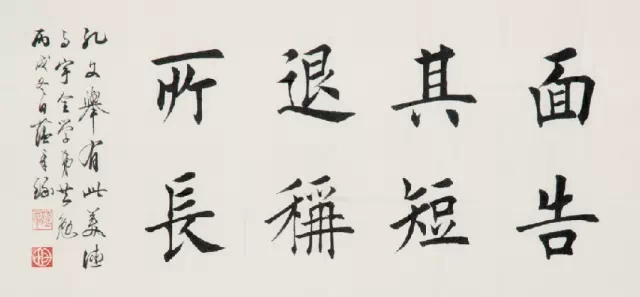 面告
其短
退稱
所長
孔文舉有此美德
与宇全学弟共勉
丙戌冬日